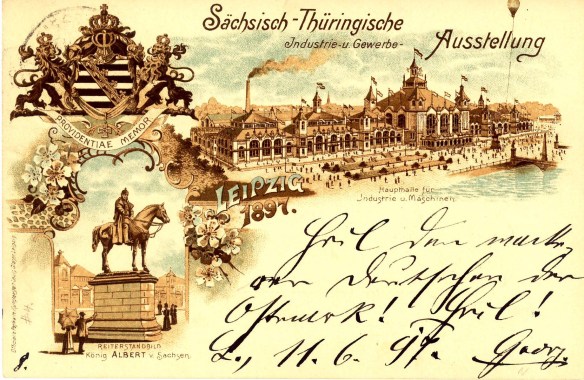 Sächsisch-Thüringische
Industrie- u. Gewerbe-
Ausstellung
PROVIDENTIAE MEMOR
LEIPZIG
1897.
Haupthalle für
Industrie u. Maschinen.
Heil den wacke-
ren Deutschen der
Ostmark! Heil!
L., 11. 6. 97. Georg.
REITERSTANDBILD
König ALBERT v. Sachsen.
8.